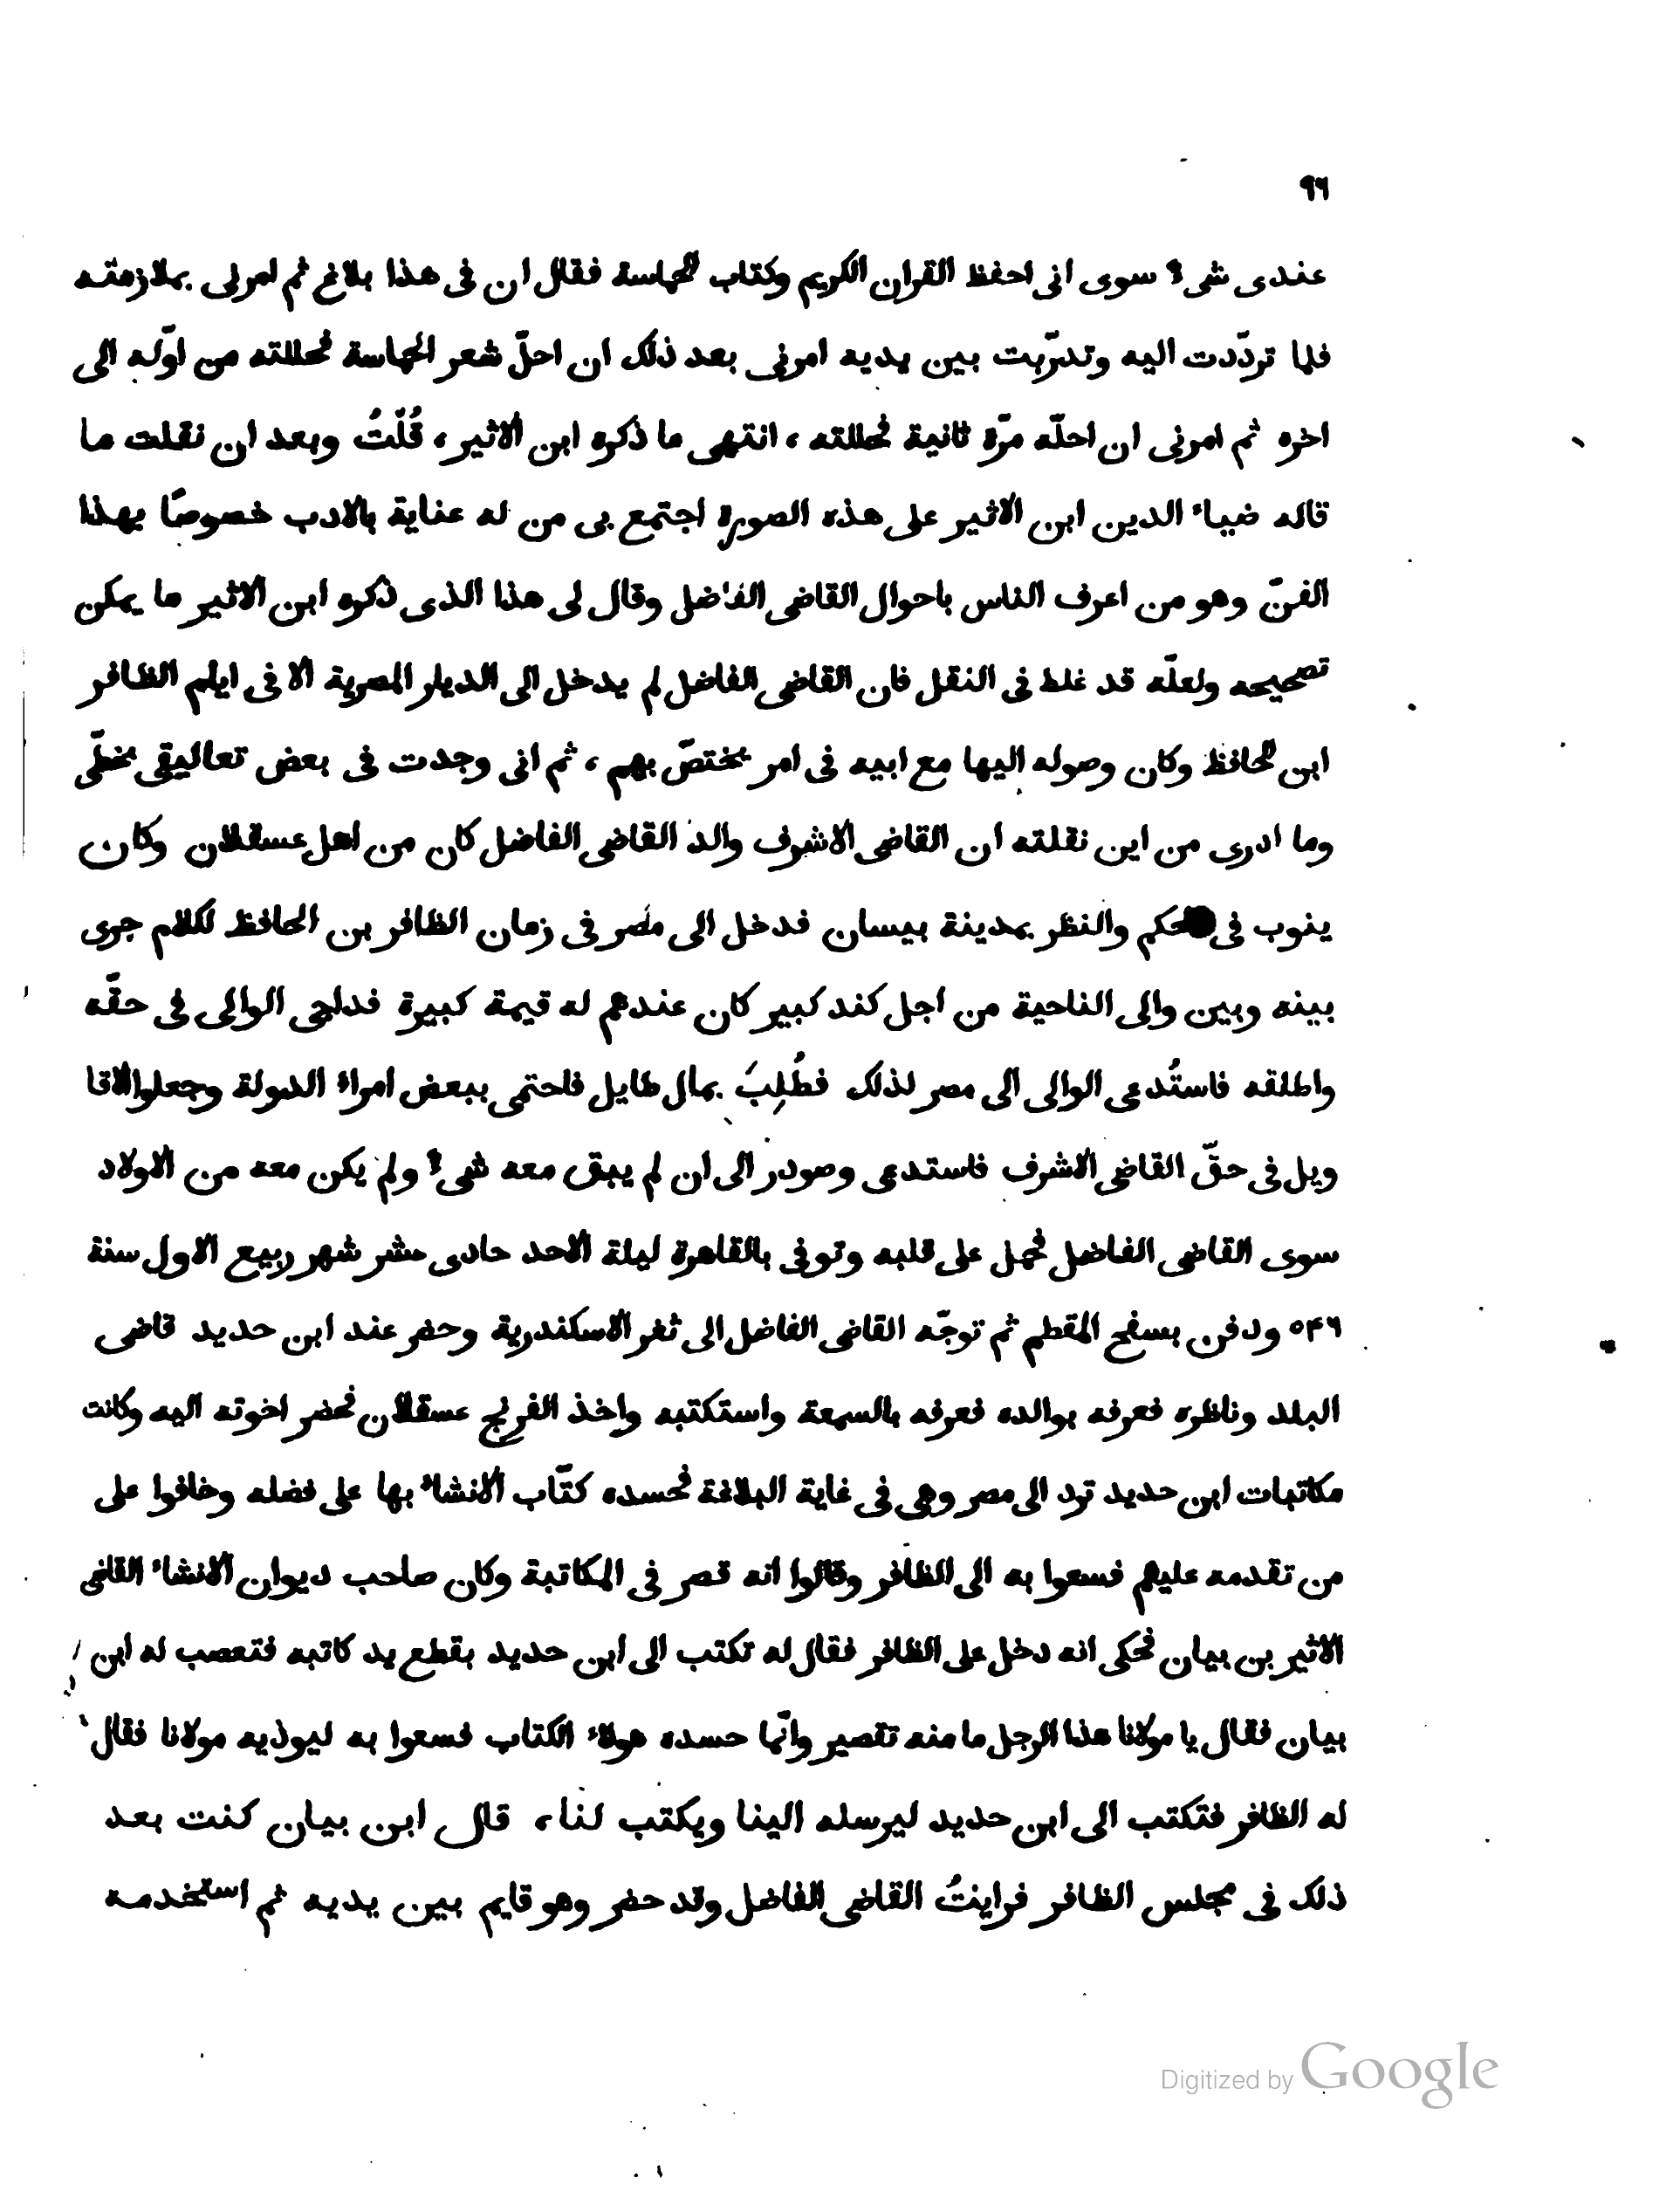 ٩٦
عندى شىء سوى انى احفظ القران الكريم وكتاب الحماسة فقال ان فى هذا بلاغ ثم امرنى بملازمته
فلما تردّدت اليه وتدرّبت بين يديه امرنى بعد ذلك ان احلّ شعر الحماسة فحللته من اوّله الى
اخره ثم امرنى ان احلّه مرّة ثانية فحللته ، انتهى ما ذكره ابن الاثير ، قُلْتُ وبعد ان نقلت ما
قاله ضياء الدين ابن الاثير على هذه الصورة اجتمع بى من له عناية بالادب خصوصًا بهذا
الفنّ وهو من اعرف الناس باحوال القاضى الفاضل وقال لى هذا الذى ذكره ابن الاثير ما يمكن
تصحيحه ولعلّه قد غلط فى النقل فان القاضى الفاضل لم يدخل الى الديار المصرية الا فى ايام الظافر
ابن الحافظ وكان وصوله اليها مع ابيه فى امر يختصّ بهم ، ثم انى وجدت فى بعض تعاليقى بخطّى
وما ادرى من اين نقلته ان القاضى الاشرف والد القاضى الفاضل كان من اهل عسقلان وكان
ينوب فى الحكم والنظر بمدينة بيسان فدخل الى مصر فى زمان الظافر بن الحافظ لكلام جرى
بينه وبين والى الناحية من اجل كند كبير كان عندهم له قيمة كبيرة فداجى الوالى فى حقّه
واطلقه فاستُدعى الوالى الى مصر لذلك فطُلِبَ بمال طايل فاحتمى ببعض امراء الدولة وجعلوا الاقا
ويل فى حقّ القاضى الاشرف فاستدعى وصودر الى ان لم يبق معه شىء ولم يكن معه من الاولاد
سوى القاضى الفاضل فحمل على قلبه وتوفى بالقاهرة ليلة الاحد حادى عشر شهر ربيع الاول سنة
٥۴٦ ودفن بسفح المقطم ثم توجّه القاضى الفاضل الى ثغر الاسكندرية وحضر عند ابن حديد قاضى
البلد وناظره فعرفه بوالده فعرفه بالسمعة واستكتبه واخذ الفرنج عسقلان فحضر اخوته اليه وكانت
مكاتبات ابن حديد ترد الى مصر وهى فى غاية البلاغة فحسده كتّاب الانشاء بها على فضله وخافوا على
من تقدمه عليهم فسعوا به الى الظافر وقالوا انه قصر فى المكاتبة وكان صاحب ديوان الانشاء القاضى
الاثير بن بيان فحكى انه دخل على الظافر فقال له تكتب الى ابن حديد بقطع يد كاتبه فتعصب له ابن
بيان فقال يا مولانا هذا الرجل ما منه تقصير وانّما حسده هولاء الكتاب فسعوا به ليوذيه مولانا فقال
له الظافر فتكتب الى ابن حديد ليرسله الينا ويكتب لنا ، قال ابن بيان كنت بعد
ذلك فى مجلس الظافر فرايتُ القاضى الفاضل وقد حضر وهو قايم بين يديه ثم استخدمه
Digitized by Google